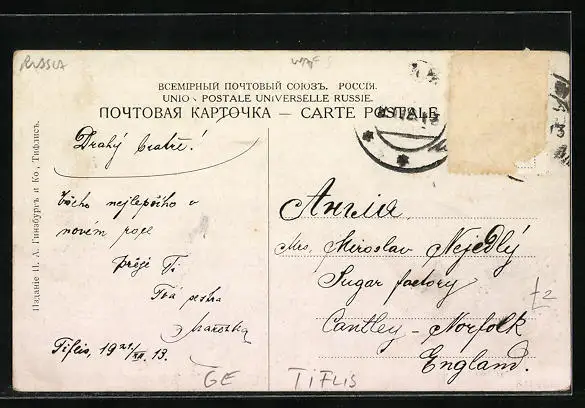 RUSSIA
ВСЕМІРНЫЙ ПОЧТОВЫЙ СОЮЗЪ. РОССІЯ.
UNION POSTALE UNIVERSELLE RUSSIE.
ПОЧТОВАЯ КАРТОЧКА — CARTE POSTALE
Изданіе Н. А. Гинзбургъ и Ко, Тифлисъ.
Drahý bratře!
Všeho nejlepšího v
novém roce
přeje Ti
Tvá sestra
Tiflis, 19 21/XII. 13.
Англія.
Mrs. Miroslav Nejedlý
Sugar factory
Cantley - Norfolk
England.
£2
GE TiFLIS